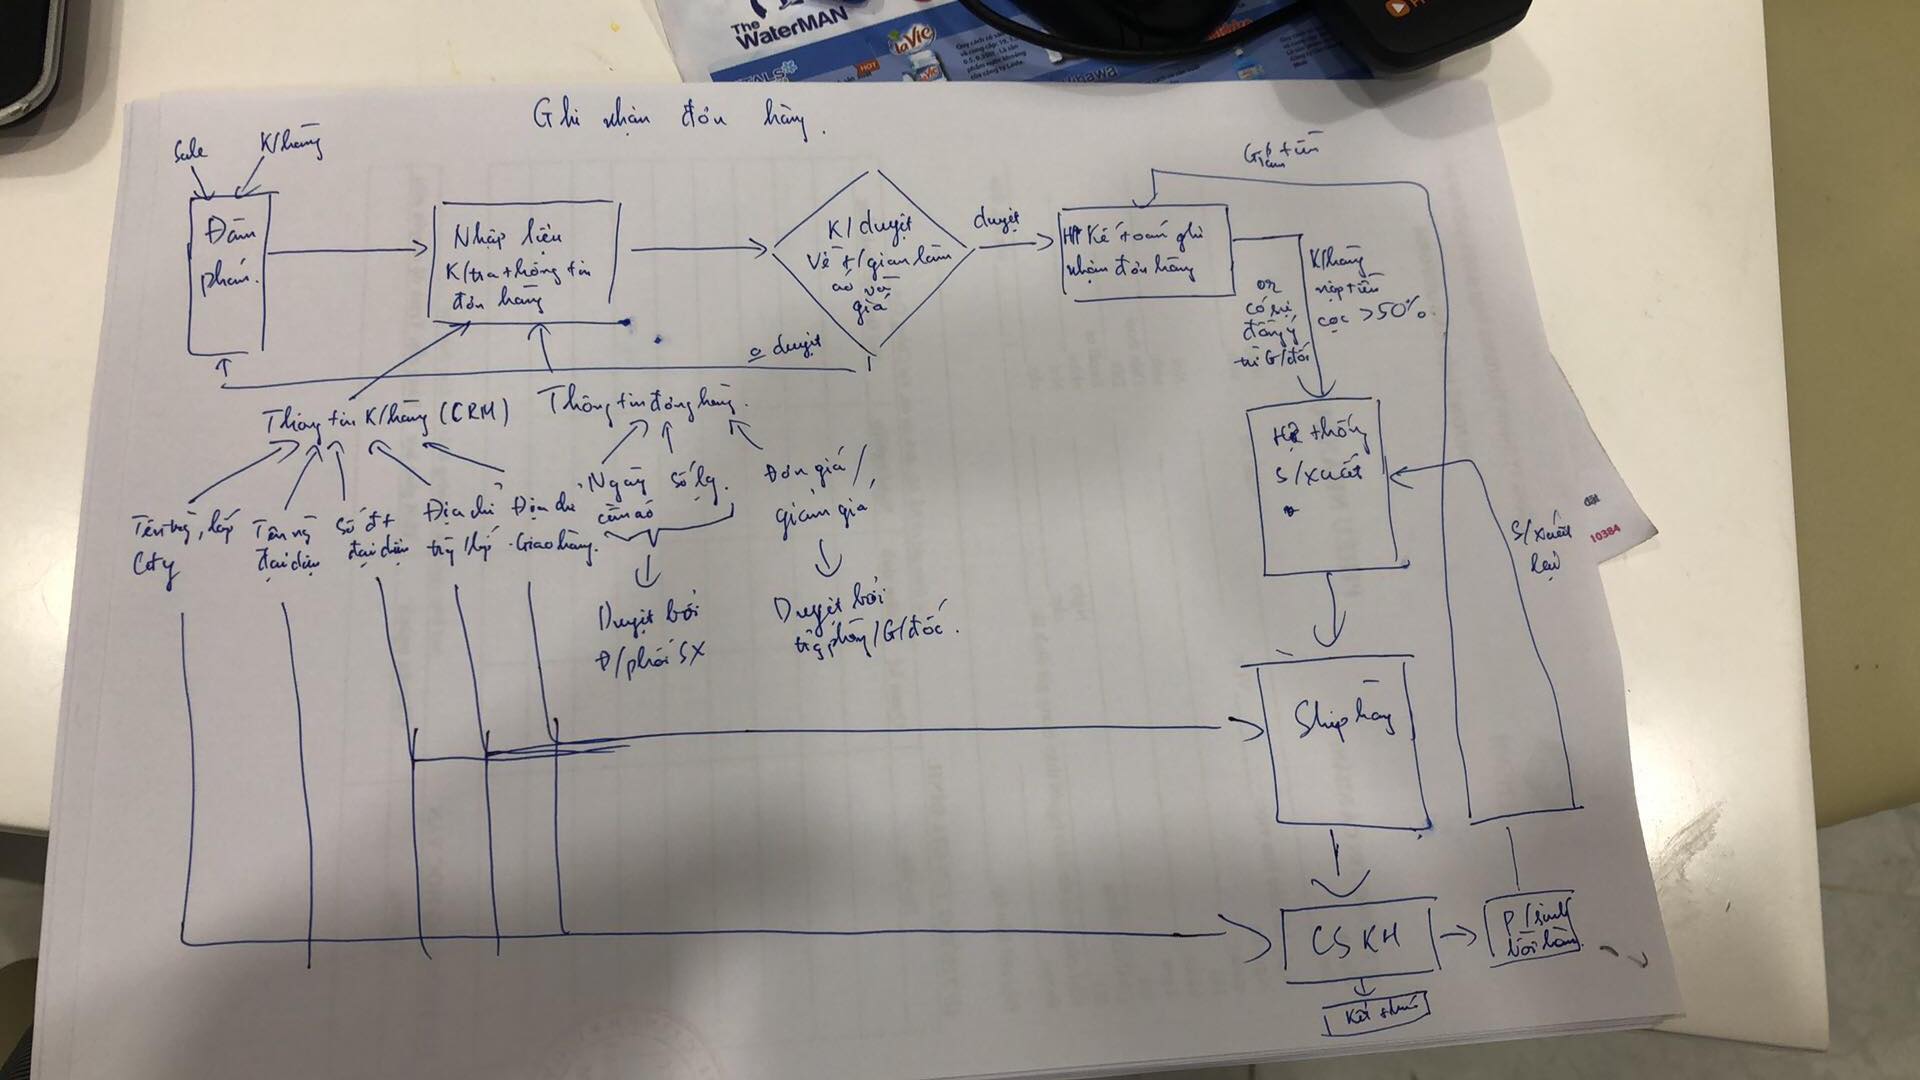 The
WaterMAN
LaVie
HOT
Ghi nhận đơn hàng.
Sale
K/hàng
Đàm
phán.
Nhập liệu
K/tra thông tin
đơn hàng
K/duyệt
Về t/gian làm
áo và
giá
duyệt
Kế toán ghi
nhận đơn hàng
Giảm tiền
K/hàng
nộp tiền
cọc >50%
or
có sự
đồng ý
từ G/đốc
0 duyệt
Thông tin K/hàng (CRM)
Thông tin đơn hàng.
Tên trg, lớp
Cty
Tên ng
đại diện
Số đt
đại diện
Địa chỉ
trg/lớp
Địa chỉ
Giao hàng.
Ngày
cần áo
số lg.
Đơn giá/
giảm giá
Duyệt bởi
Đ/phối SX
Duyệt bởi
trg phòng/G/đốc.
Hệ thống
S/xuất
S/xuất
lại
đặt
10384
Ship hàng
CSKH
P/sinh
bồi hoàn.
Kết thúc